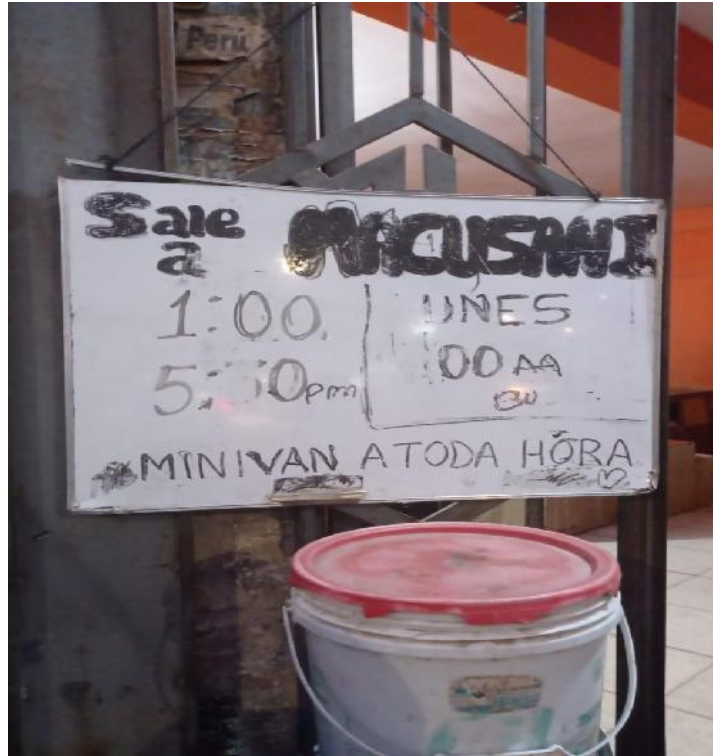 Perú
Sale MACUSANI
a
1:00
5:30pm
UNES
00 AA
MINIVAN A TODA HORA